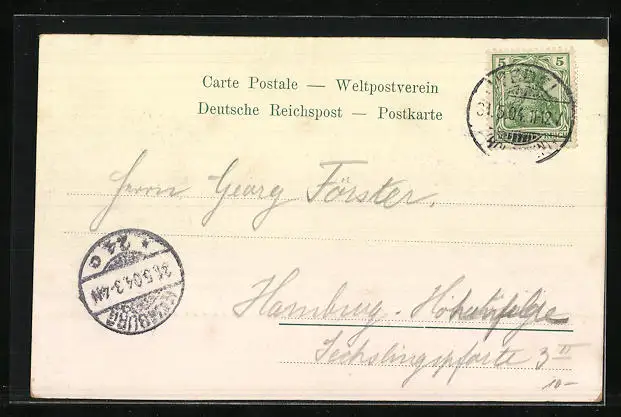 Carte Postale — Weltpostverein
Deutsche Reichspost — Postkarte
5 5
31.5.04.11-12V
Herrn Georg Förster,
* 24 c
31.5.04.3-4N
HAMBURG
Hamburg - Hohenfelde
Sechslingspforte 3 II
10-